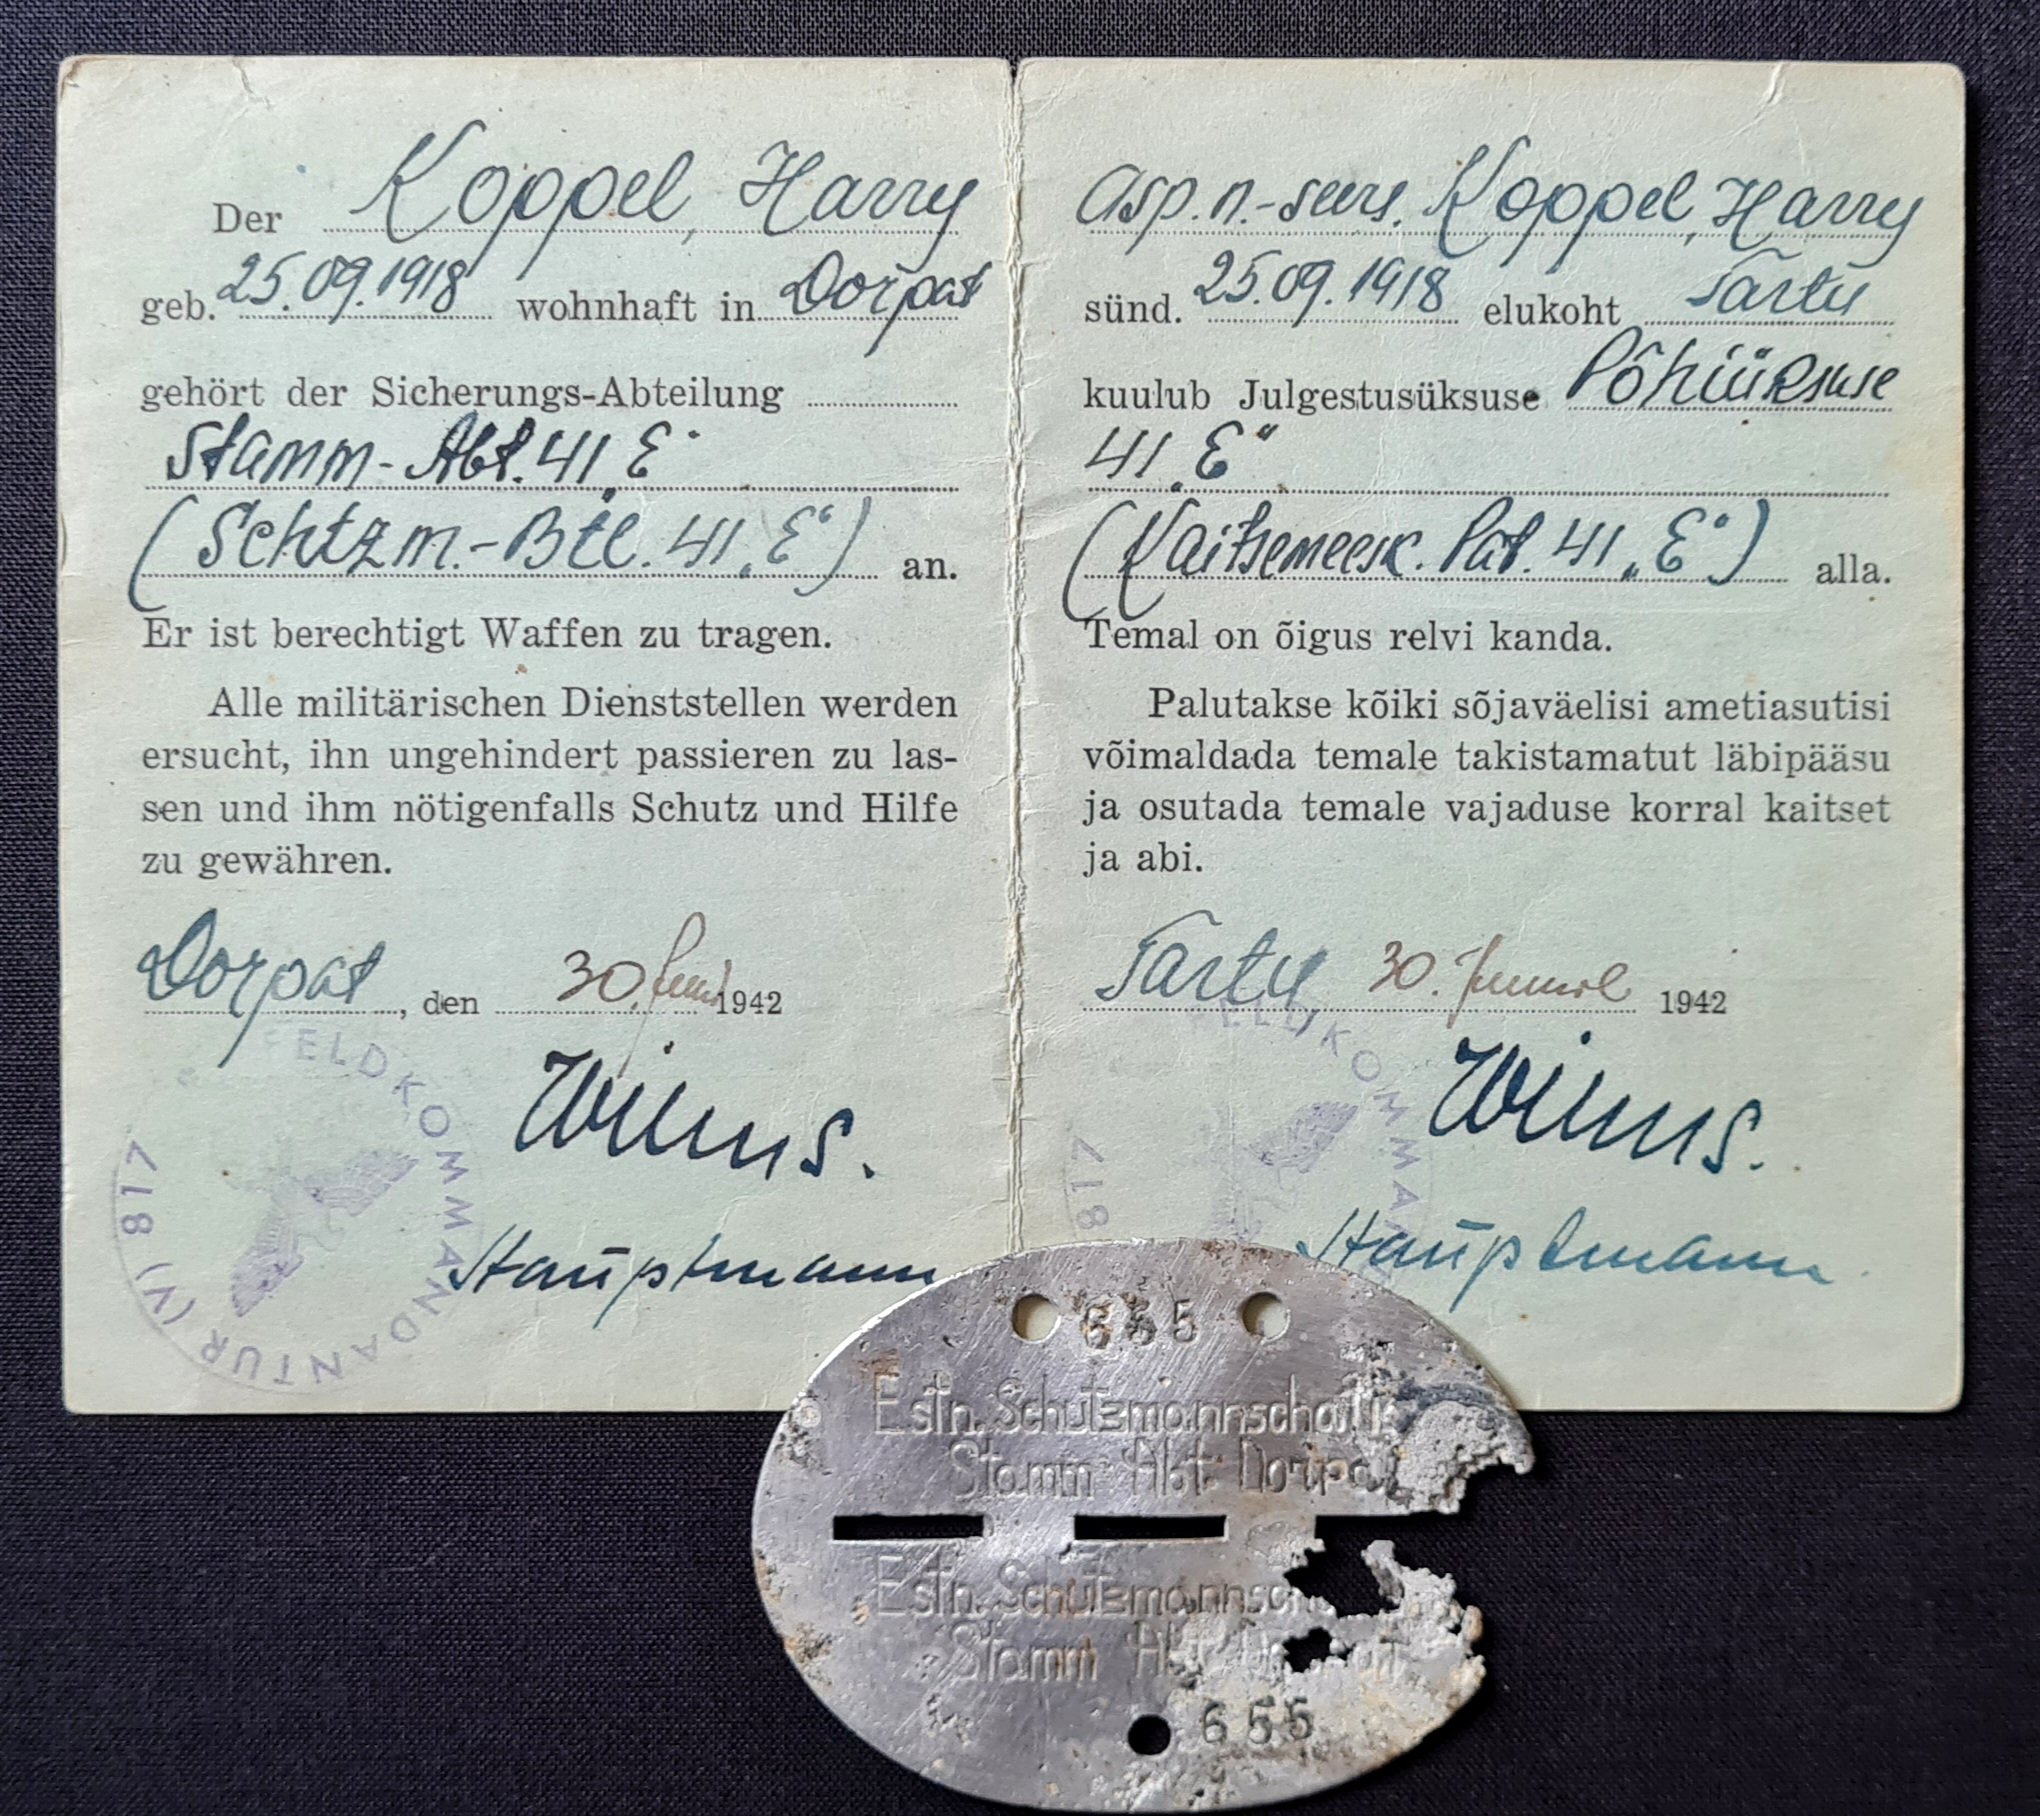 Der Koppel, Harry
geb. 25.09.1918 wohnhaft in Dorpat
gehört der Sicherungs-Abteilung
Stamm-Abt. 41 „E"
(Schtzm.-Btl. 41 „E") an.
Er ist berechtigt Waffen zu tragen.
Alle militärischen Dienststellen werden
ersucht, ihn ungehindert passieren zu las-
sen und ihm nötigenfalls Schutz und Hilfe
zu gewähren.
Dorpat, den 30. Juni 1942
Hauptmann
FELDKOMMANDANTUR (V) 817
Asp. n.-seers. Koppel, Harry
sünd. 25.09.1918 elukoht Tartu
kuulub Julgestusüksuse Põhiüksuse
41 „E"
(Kaitsemeesk. Pat. 41 „E") alla.
Temal on õigus relvi kanda.
Palutakse kõiki sõjaväelisi ametiasutisi
võimaldada temale takistamatut läbipääsu
ja osutada temale vajaduse korral kaitset
ja abi.
Tartu 30. Juunil 1942
Hauptmann
FELDKOMMAN 817
655
Estn. Schutzmannschaft
Stamm Abt. Dorpat
Estn. Schutzmannsc
Stamm Abt.
655